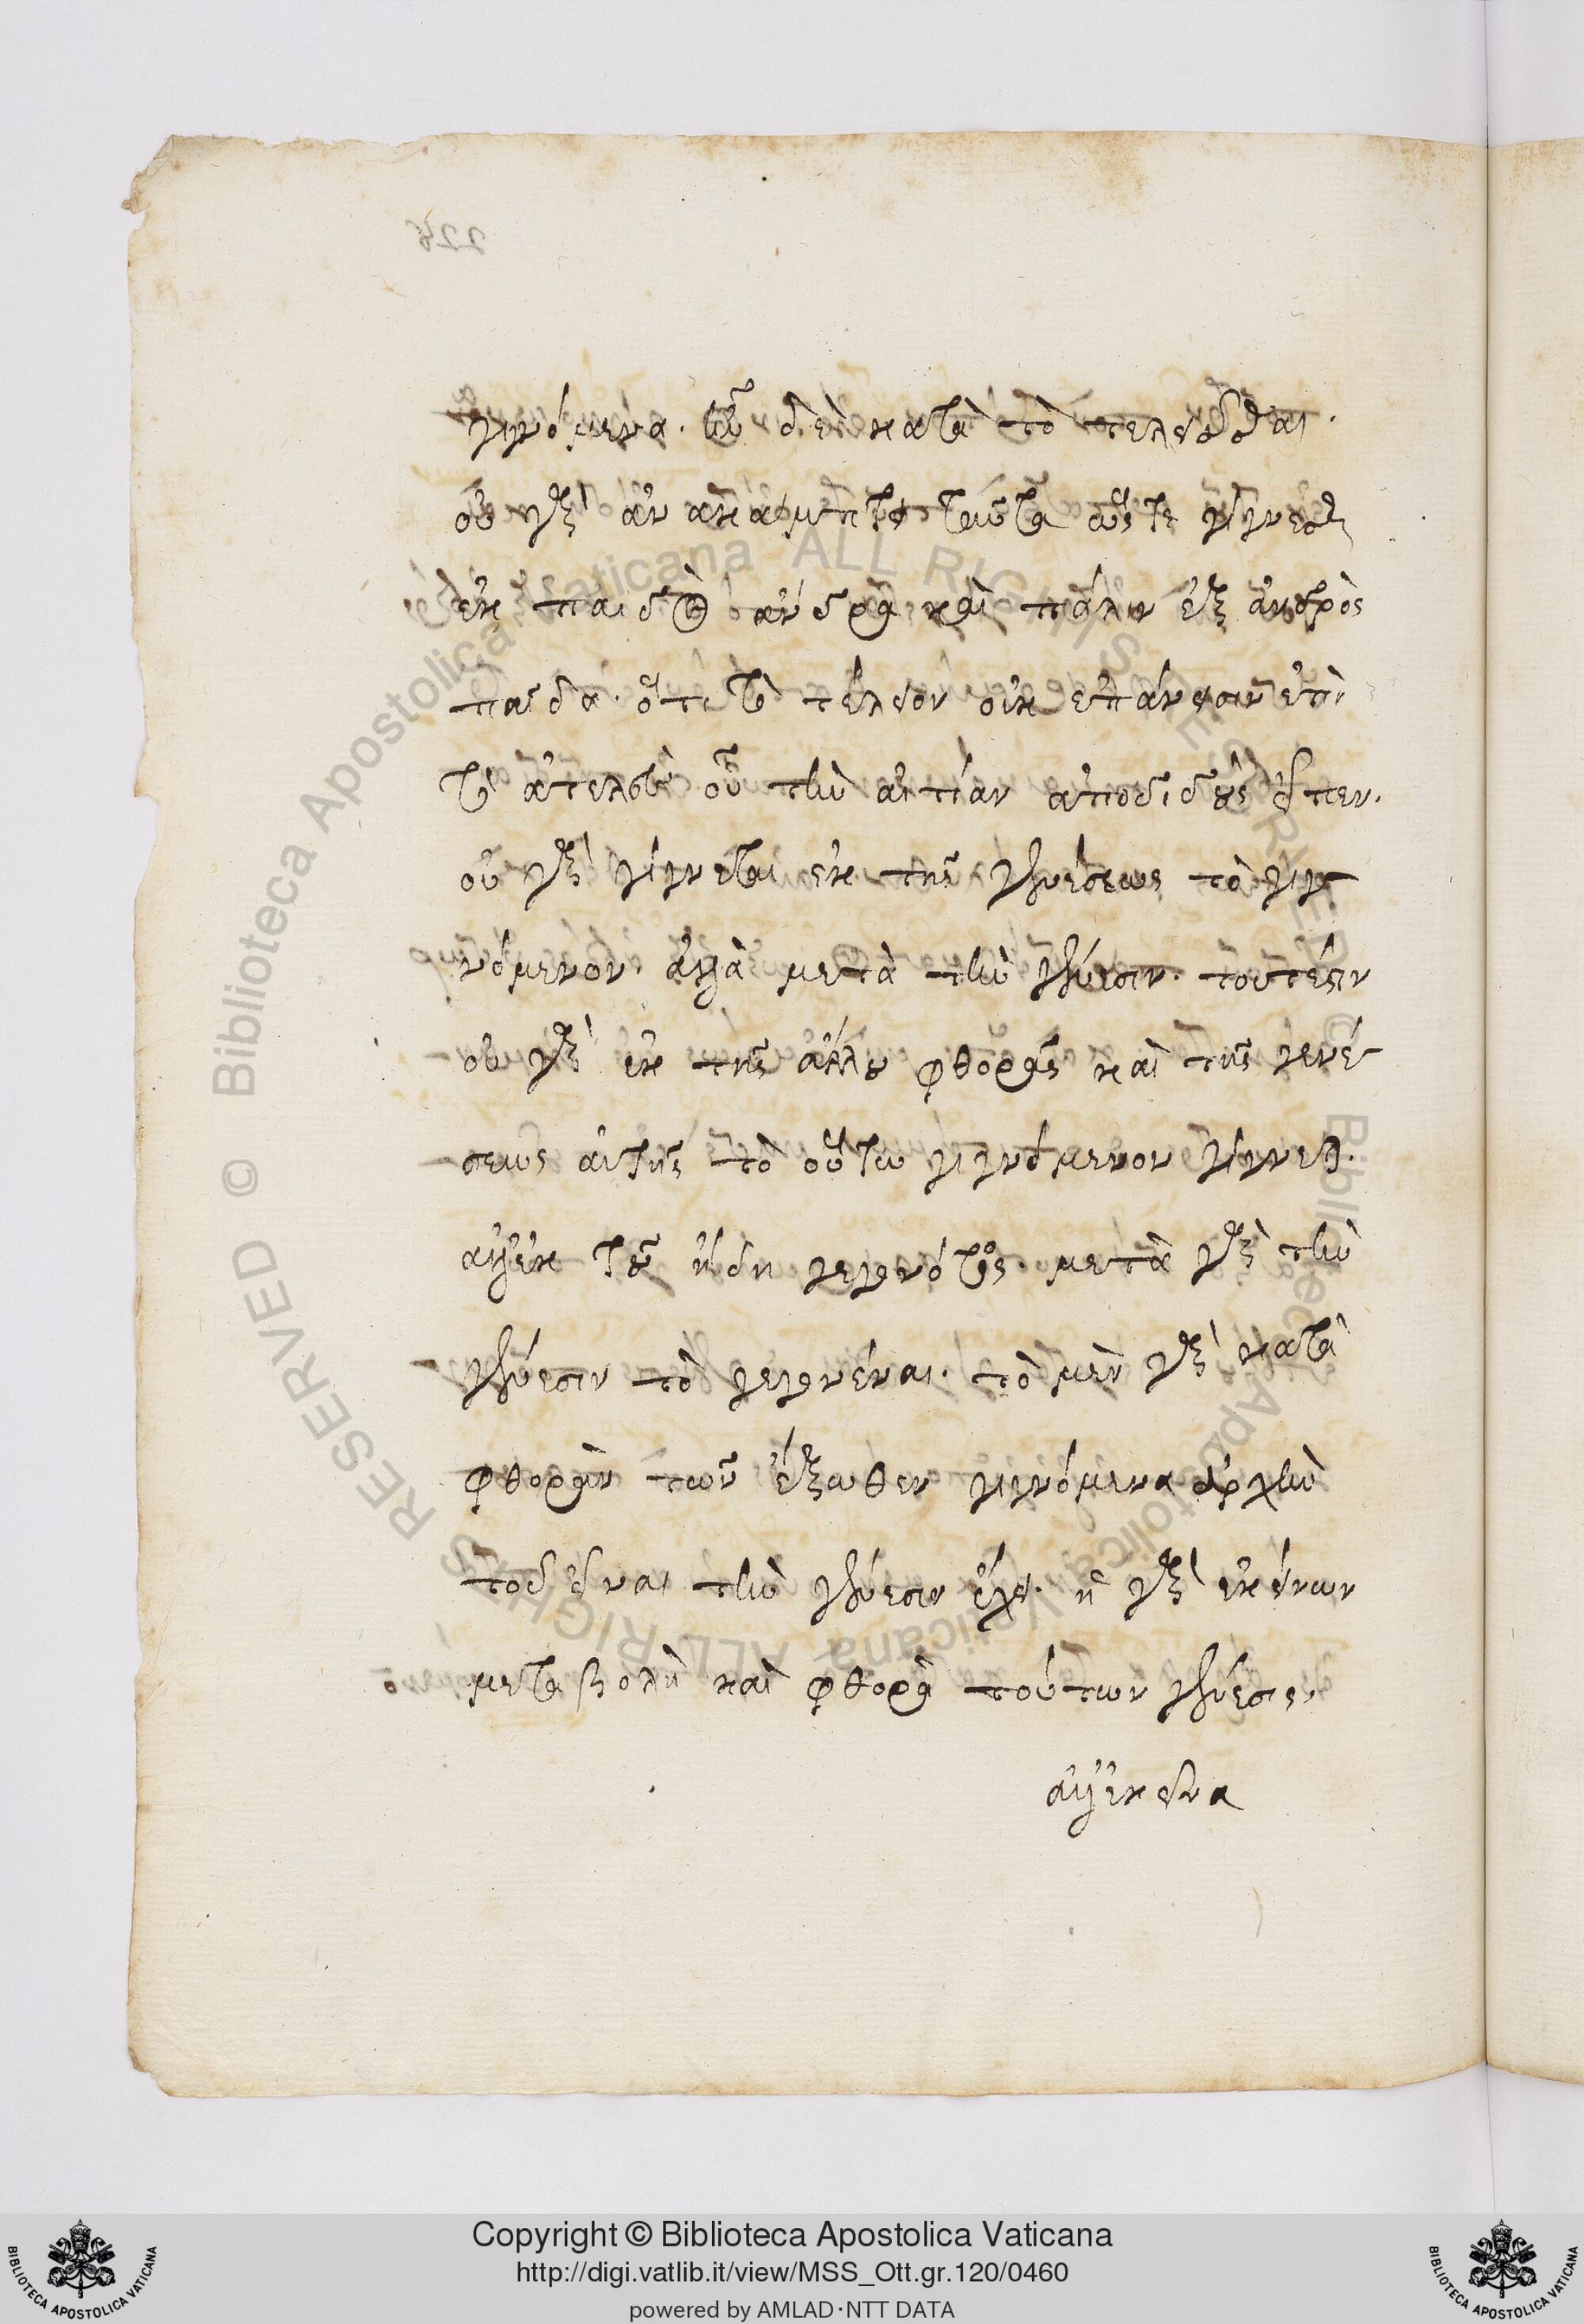 γινόμενα. τῶν δὲ κατὰ τὸ τελειοῦσθαι.
οὐ γὰρ ἀνακάμπτει ταῦτα ὥστε γίγνεσθαι
ἐκ παιδὸς ἄνδρα καὶ πάλιν ἐξ ἀνδρὸς
παῖδα. ὅτι τὸ τέλειον οὐκ ἐπάνεισιν ἐπὶ
τὸ ἀτελὲς οὗ τὴν αἰτίαν ἀποδιδοὺς εἶπεν.
οὐ γὰρ γίγνεται ἐκ τῆς γενέσεως τὸ γιγ-
νόμενον. ἀλλὰ μετὰ τὴν γένεσιν. τουτέστιν
οὐ γὰρ ἐκ τῆς ἄλλου φθορᾶς καὶ τῆς γενέ-
σεως αὐτῆς τὸ οὕτω γιγνόμενον γίγνεται.
ἀλλ' ἐκ τοῦ ἤδη γεγονότος. μετὰ γὰρ τὴν
γένεσιν τὸ γεγονέναι. τὸ μὲν γὰρ κατὰ
φθορὰν τῶν ἔξωθεν γιγνόμενα ἀρχὴν
τοῦ εἶναι τὴν γένεσιν ἔχει. ἡ γὰρ ἐκείνων
μεταβολὴ καὶ φθορὰ τούτων γένεσις.
ἀλλ' ἐκεῖνα
224
Copyright © Biblioteca Apostolica Vaticana
http://digi.vatlib.it/view/MSS_Ott.gr.120/0460
powered by AMLAD·NTT DATA